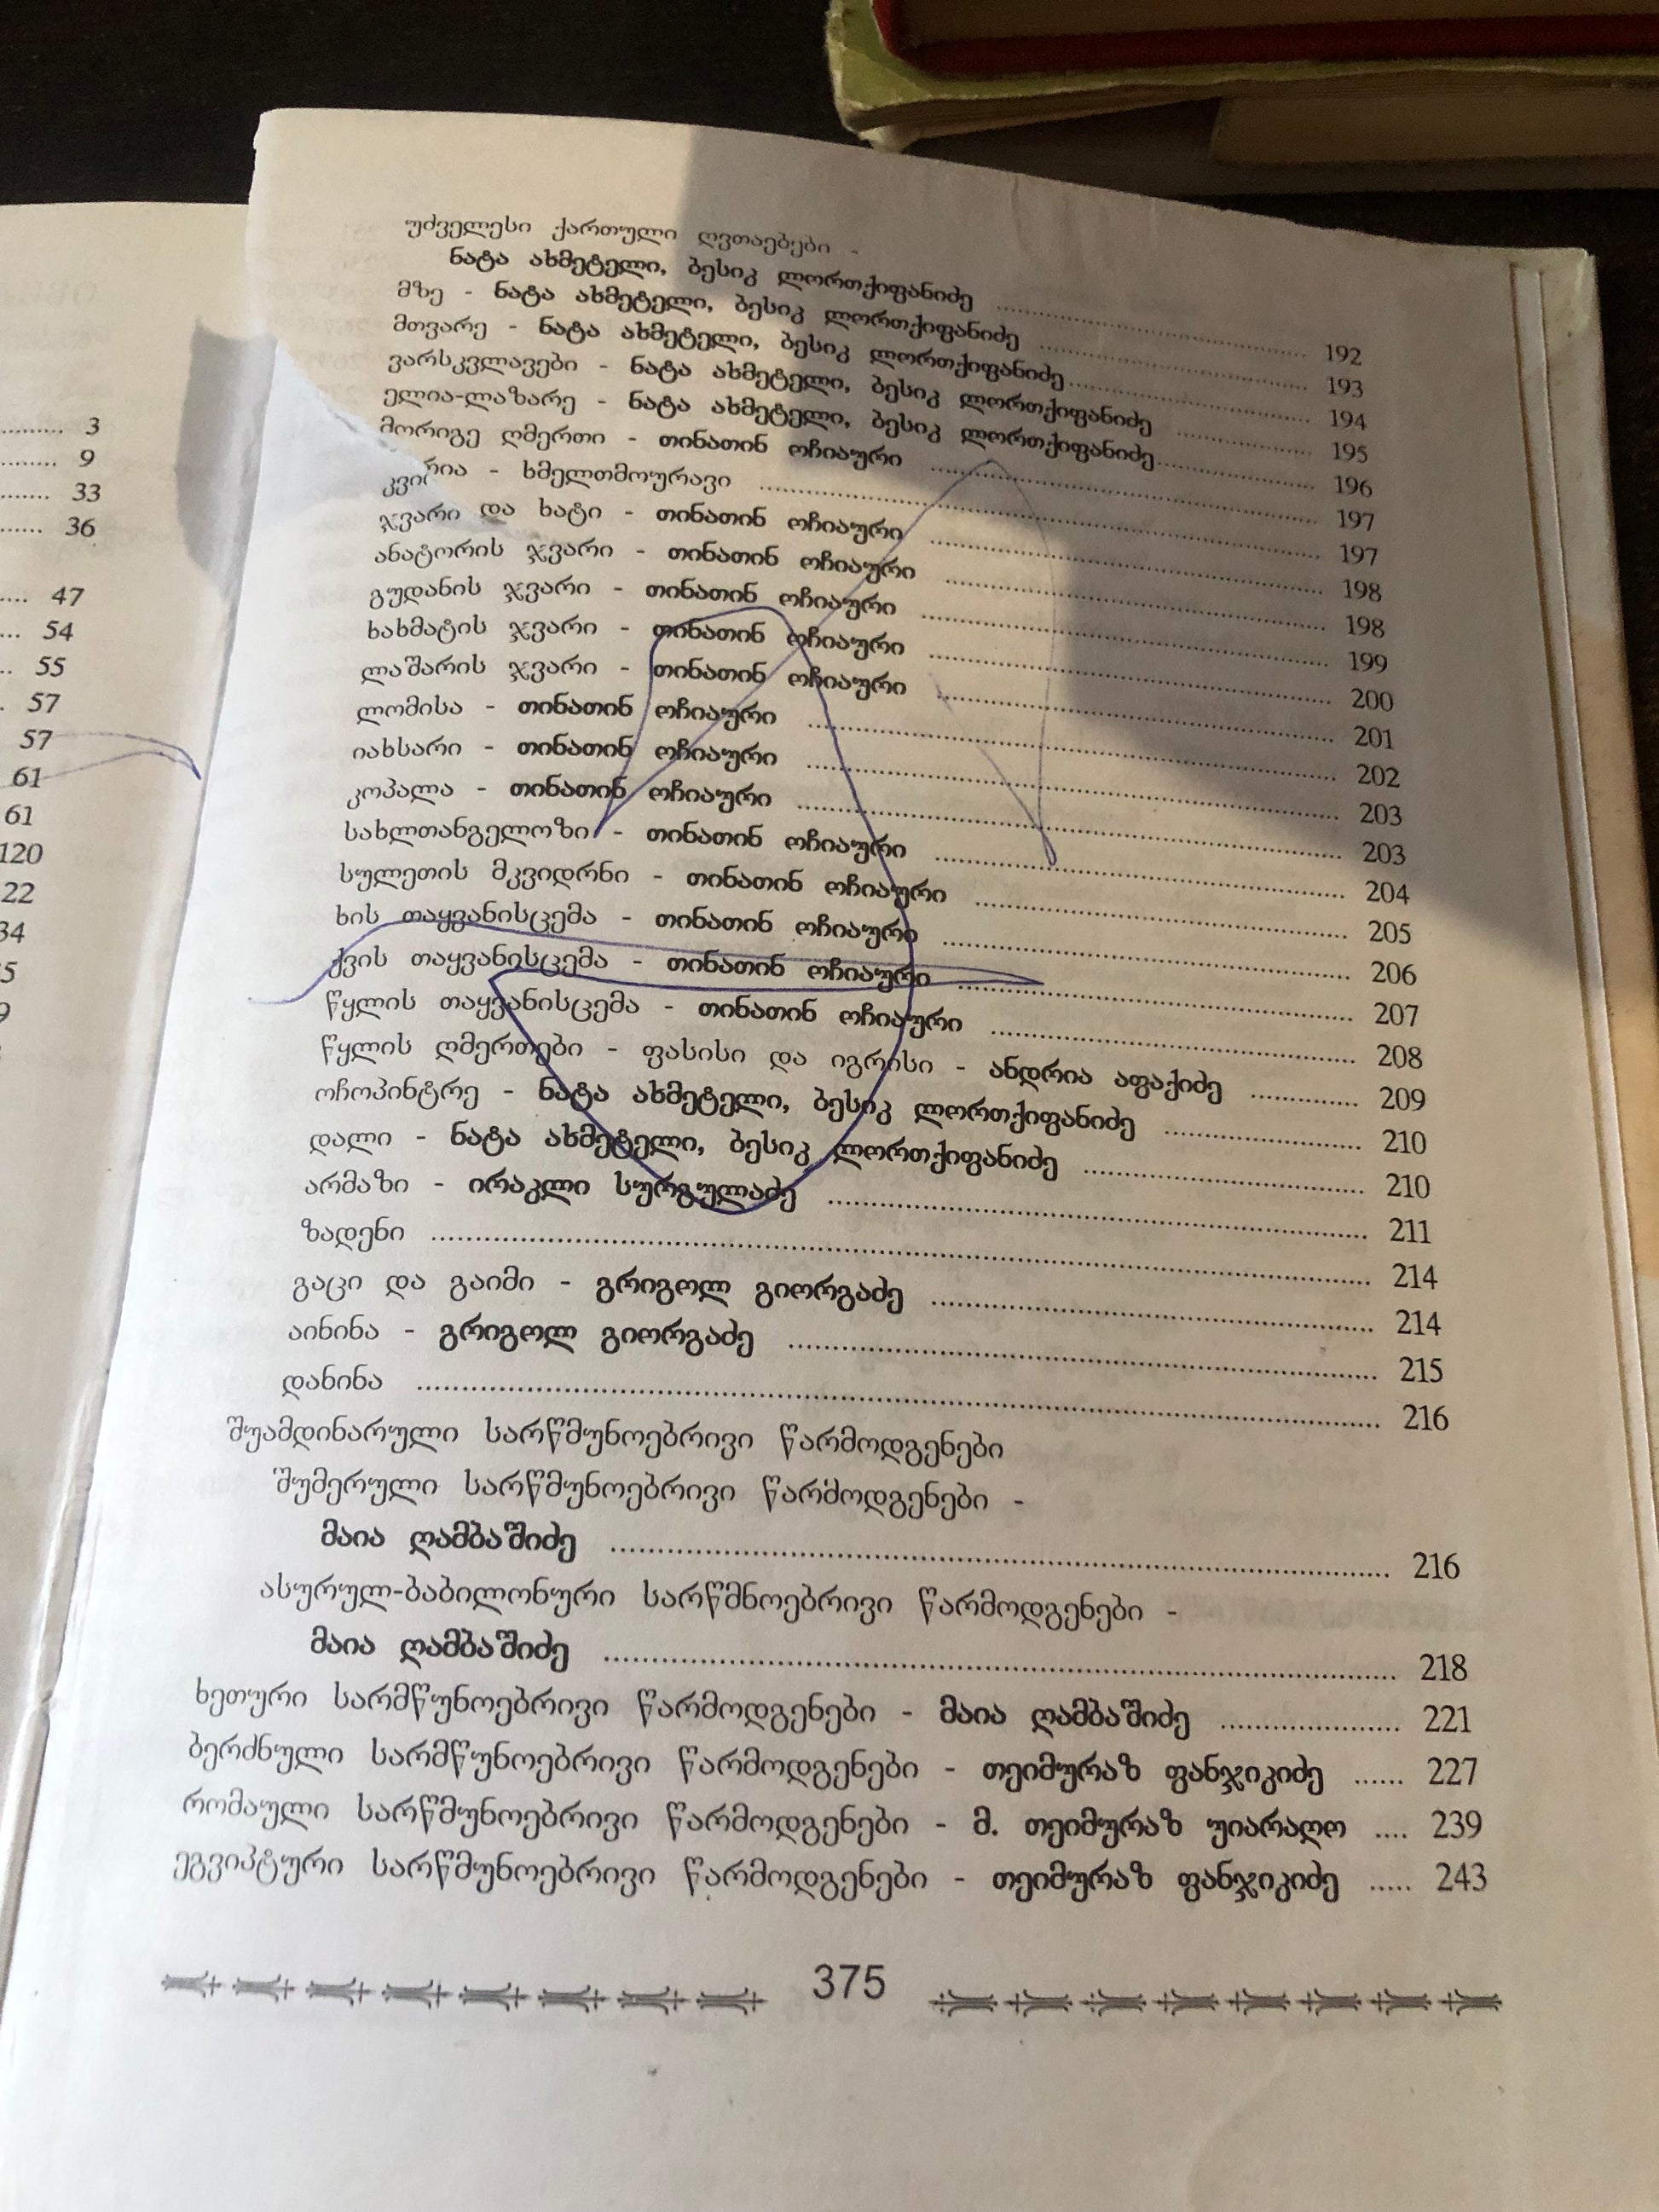 უძველესი ქართული ღვთაებები -
ნატა ახმეტელი, ბესიკ ლორთქიფანიძე ........ 192
მზე - ნატა ახმეტელი, ბესიკ ლორთქიფანიძე ........ 193
მთვარე - ნატა ახმეტელი, ბესიკ ლორთქიფანიძე ........ 194
ვარსკვლავები - ნატა ახმეტელი, ბესიკ ლორთქიფანიძე ........ 195
ელია-ლაზარე - ნატა ახმეტელი, ბესიკ ლორთქიფანიძე ........ 196
მორიგე ღმერთი - თინათინ ოჩიაური ........ 197
კვირია - ხმელთმოურავი ........ 197
ჯვარი და ხატი - თინათინ ოჩიაური ........ 198
ანატორის ჯვარი - თინათინ ოჩიაური ........ 198
გუდანის ჯვარი - თინათინ ოჩიაური ........ 199
ხახმატის ჯვარი - თინათინ ოჩიაური ........ 200
ლაშარის ჯვარი - თინათინ ოჩიაური ........ 201
ლომისა - თინათინ ოჩიაური ........ 202
იახსარი - თინათინ ოჩიაური ........ 203
კოპალა - თინათინ ოჩიაური ........ 203
სახლთანგელოზი - თინათინ ოჩიაური ........ 204
სულეთის მკვიდრნი - თინათინ ოჩიაური ........ 205
ხის თაყვანისცემა - თინათინ ოჩიაური ........ 206
ქვის თაყვანისცემა - თინათინ ოჩიაური ........ 207
წყლის თაყვანისცემა - თინათინ ოჩიაური ........ 208
წყლის ღმერთები - ფასისი და იგრისი - ანდრია აფაქიძე ........ 209
ოჩოპინტრე - ნატა ახმეტელი, ბესიკ ლორთქიფანიძე ........ 210
დალი - ნატა ახმეტელი, ბესიკ ლორთქიფანიძე ........ 210
არმაზი - ირაკლი სურგულაძე ........ 211
ზადენი ........ 214
გაცი და გაიმი - გრიგოლ გიორგაძე ........ 214
აინინა - გრიგოლ გიორგაძე ........ 215
დანინა ........ 216
შუამდინარული სარწმუნოებრივი წარმოდგენები
შუმერული სარწმუნოებრივი წარმოდგენები -
მაია ღამბაშიძე ........ 216
ასურულ-ბაბილონური სარწმნოებრივი წარმოდგენები -
მაია ღამბაშიძე ........ 218
ხეთური სარმწუნოებრივი წარმოდგენები - მაია ღამბაშიძე ........ 221
ბერძნული სარმწუნოებრივი წარმოდგენები - თეიმურაზ ფანჯიკიძე ...... 227
რომაული სარწმუნოებრივი წარმოდგენები - მ. თეიმურაზ უიარაღო .... 239
ეგვიპტური სარწმუნოებრივი წარმოდგენები - თეიმურაზ ფანჯიკიძე ..... 243
375
3
9
33
36
47
54
55
57
57
61
61
120